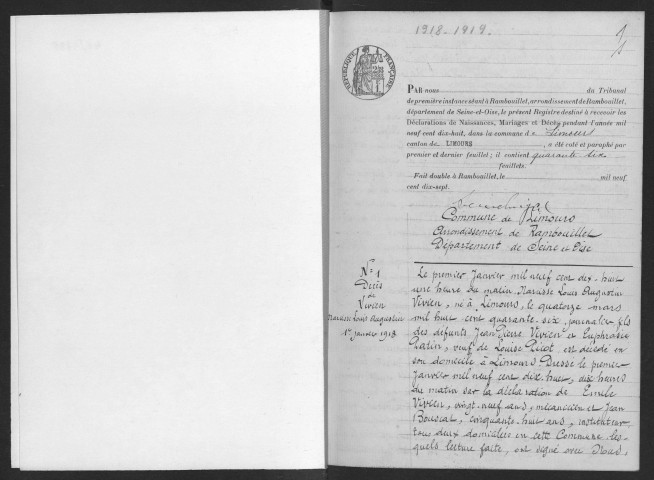 1918-1919.
1
RÉPUBLIQUE FRANÇAISE
PAR nous du Tribunal
de première instance séant à Rambouillet, arrondissement de Rambouillet,
département de Seine-et-Oise, le présent Registre destiné à recevoir les
Déclarations de Naissances, Mariages et Décès pendant l'année mil
neuf cent dix-huit, dans la commune de Limours
canton de LIMOURS, a été coté et paraphé par
premier et dernier feuillet; il contient quarante six
feuillets.
Fait double à Rambouillet, le mil neuf
cent dix-sept.
Commune de Limours
Arrondissement de Rambouillet
Département de Seine et Oise
N° 1
Décès
de
Vivien
Narcisse Louis Augustin
1er janvier 1918
Le premier Janvier mil neuf cent dix-huit
une heure du matin, Narcisse Louis Augustin
Vivien, né à Limours, le quatorze mars
mil huit cent quarante six, journalier, fils
des défunts Jean Pierre Vivien et Euphrasie
veuf de Louise Picot, est décédé en
son domicile à Limours. Dressé le premier
Janvier mil neuf cent dix-huit, dix heures
du matin sur la déclaration de Emile
Vivien, vingt-neuf ans, mécanicien et Jean
Bouscat, cinquante-huit ans, instituteur
tous deux domiciliés en cette Commune les-
quels lecture faite, ont signé avec Nous,